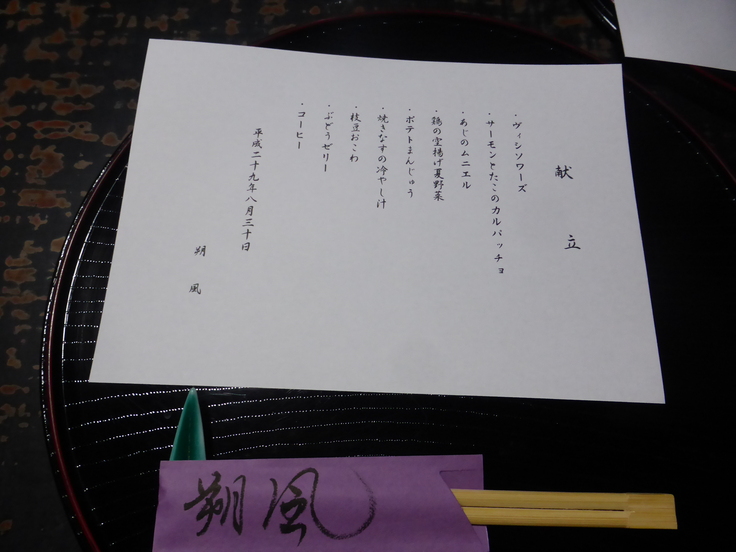 献立
・ヴィシソワーズ
・サーモンとたこのカルパッチョ
・あじのムニエル
・鶏の空揚げ夏野菜
・ポテトまんじゅう
・焼きなすの冷やし汁
・枝豆おこわ
・ぶどうゼリー
・コーヒー
平成二十九年八月三十日
朔風
朔風